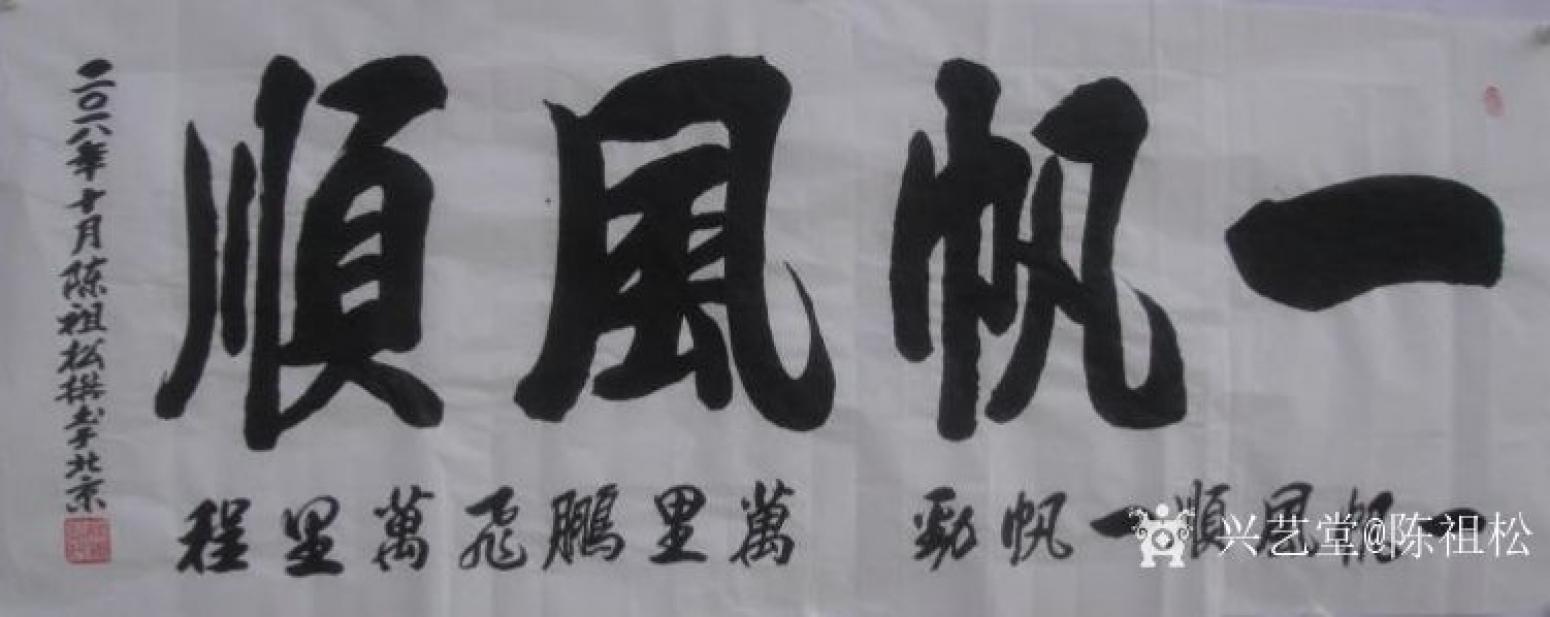 一帆風順
一帆風順一帆勁
萬里鵬飛萬里程
二〇一八年十月陈祖松撰书于北京
兴艺堂@陈祖松